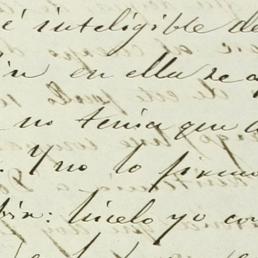 é inteligible de
en ella se a
no tenia que a
Y no lo firmo
bir: hicelo yo con